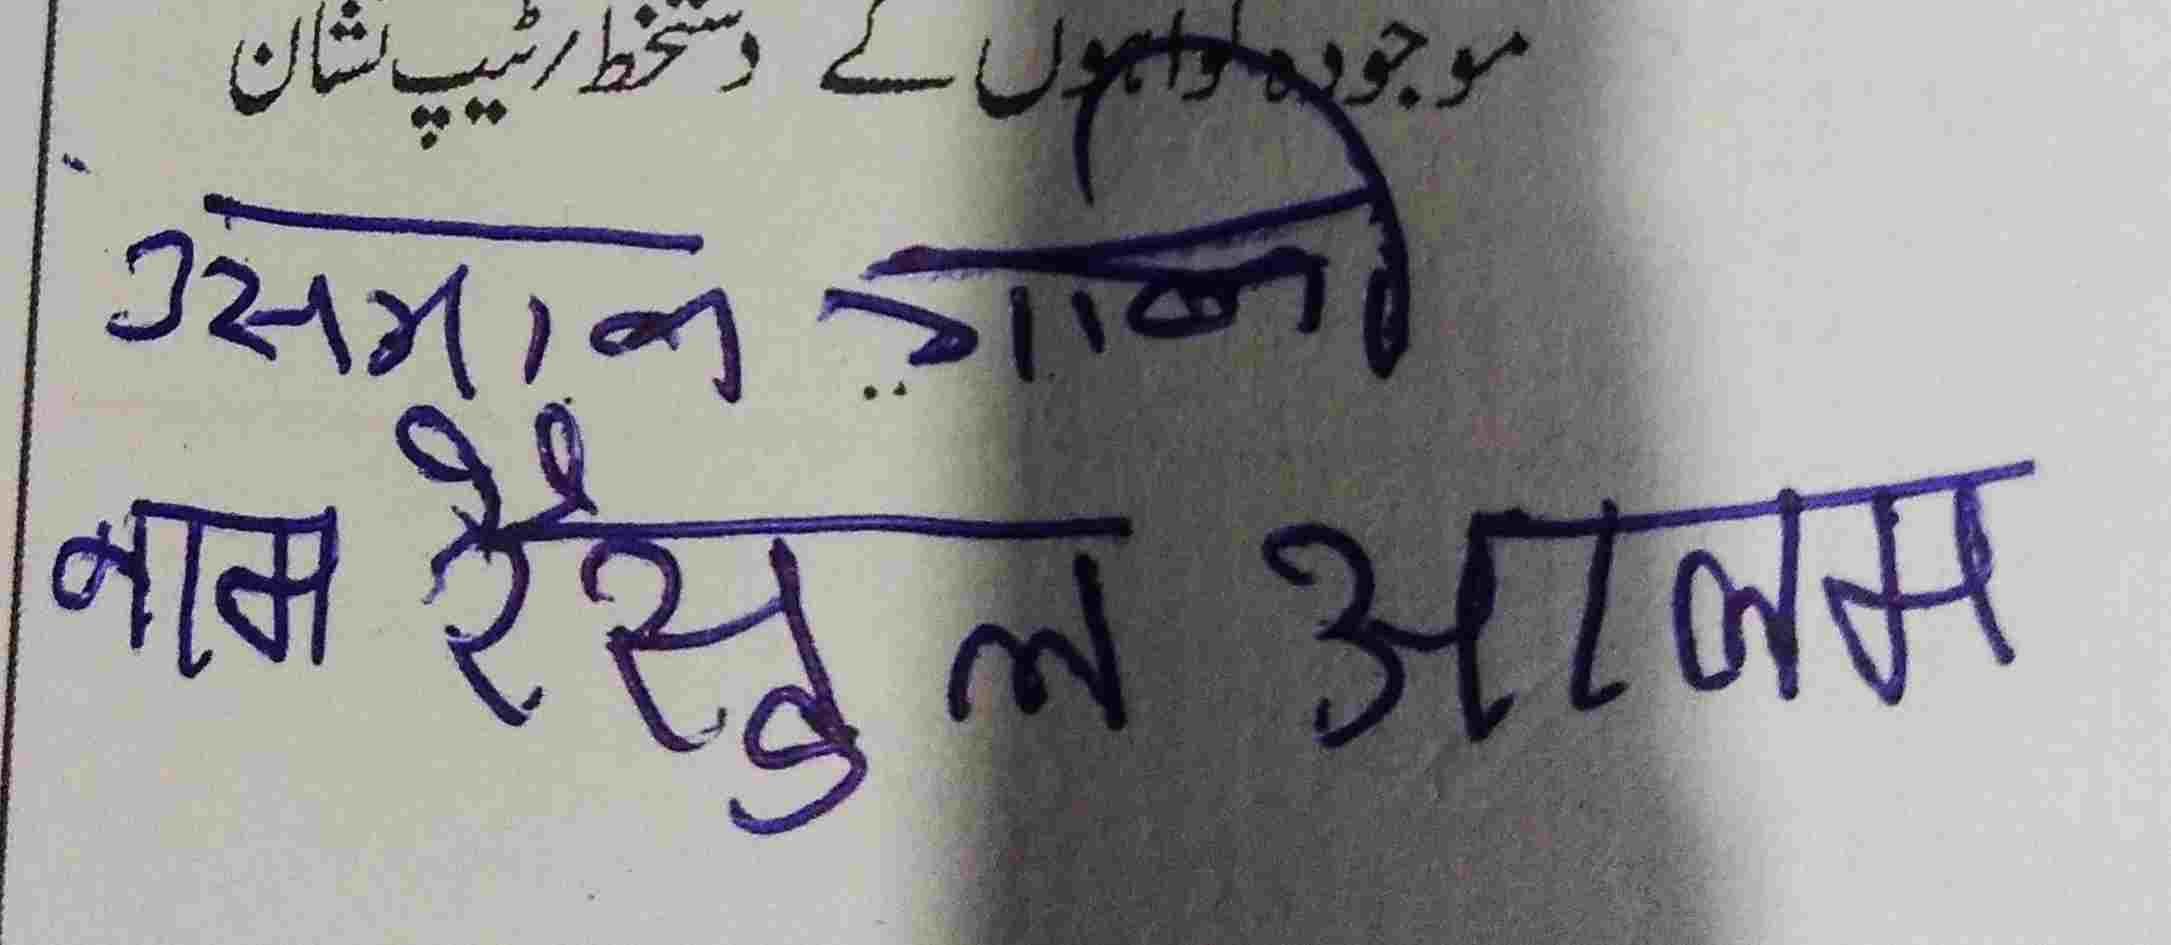 موجودہ گواہوں کے دستخط/ٹیپ نشان
उसमान गानी
नाम रैसुल आलम